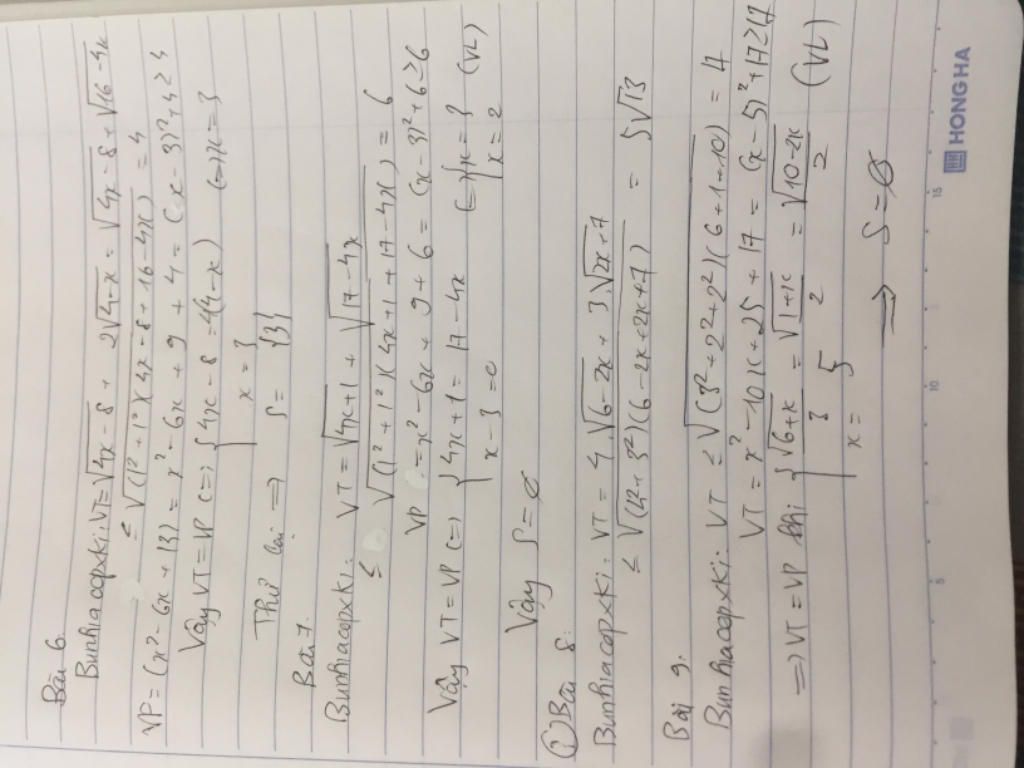 Bài 6.
Bunhiacopxki: VT = √4x - 8 + 2√4-x = √4x - 8 + √16 - 4x
≤ √(1² + 1²)(4x - 8 + 16 - 4x) = 4
VP = (x² - 6x + 13) = x² - 6x + 9 + 4 = (x - 3)² + 4 ≥ 4
Vậy VT = VP (=> { 4x - 8 = 4(4-x) (=> x = 3
x = 3
Thử lại => S = {3}
Bài 7.
Bunhiacopxki: VT = √4x+1 + √17 - 4x
≤ √(1² + 1²)(4x + 1 + 17 - 4x) = 6
VP = x² - 6x + 9 + 6 = (x - 3)² + 6 ≥ 6
Vậy VT = VP (=> { 4x + 1 = 17 - 4x (=> { x = 3 (VL)
x - 3 = 0 x = 2
Vậy S = ∅
Bài 8:
Bunhiacopxki: VT = 4.√6-2x + 3√2x+7
≤ √(42+3²)(6 - 2x + 2x + 7) = 5√13
Bài 9.
Bunhiacopxki: VT ≤ √(3² + 2² + 2²)(6 + 1 + 10) = 17
VT = x² - 10x + 25 + 17 = (x - 5)² + 17 ≥ 17
=> VT = VP khi { √6+x/3 = √1+x/2 = √10-2x/2 (VL)
x = 5
=> S = ∅
HONG HA
5 10 15